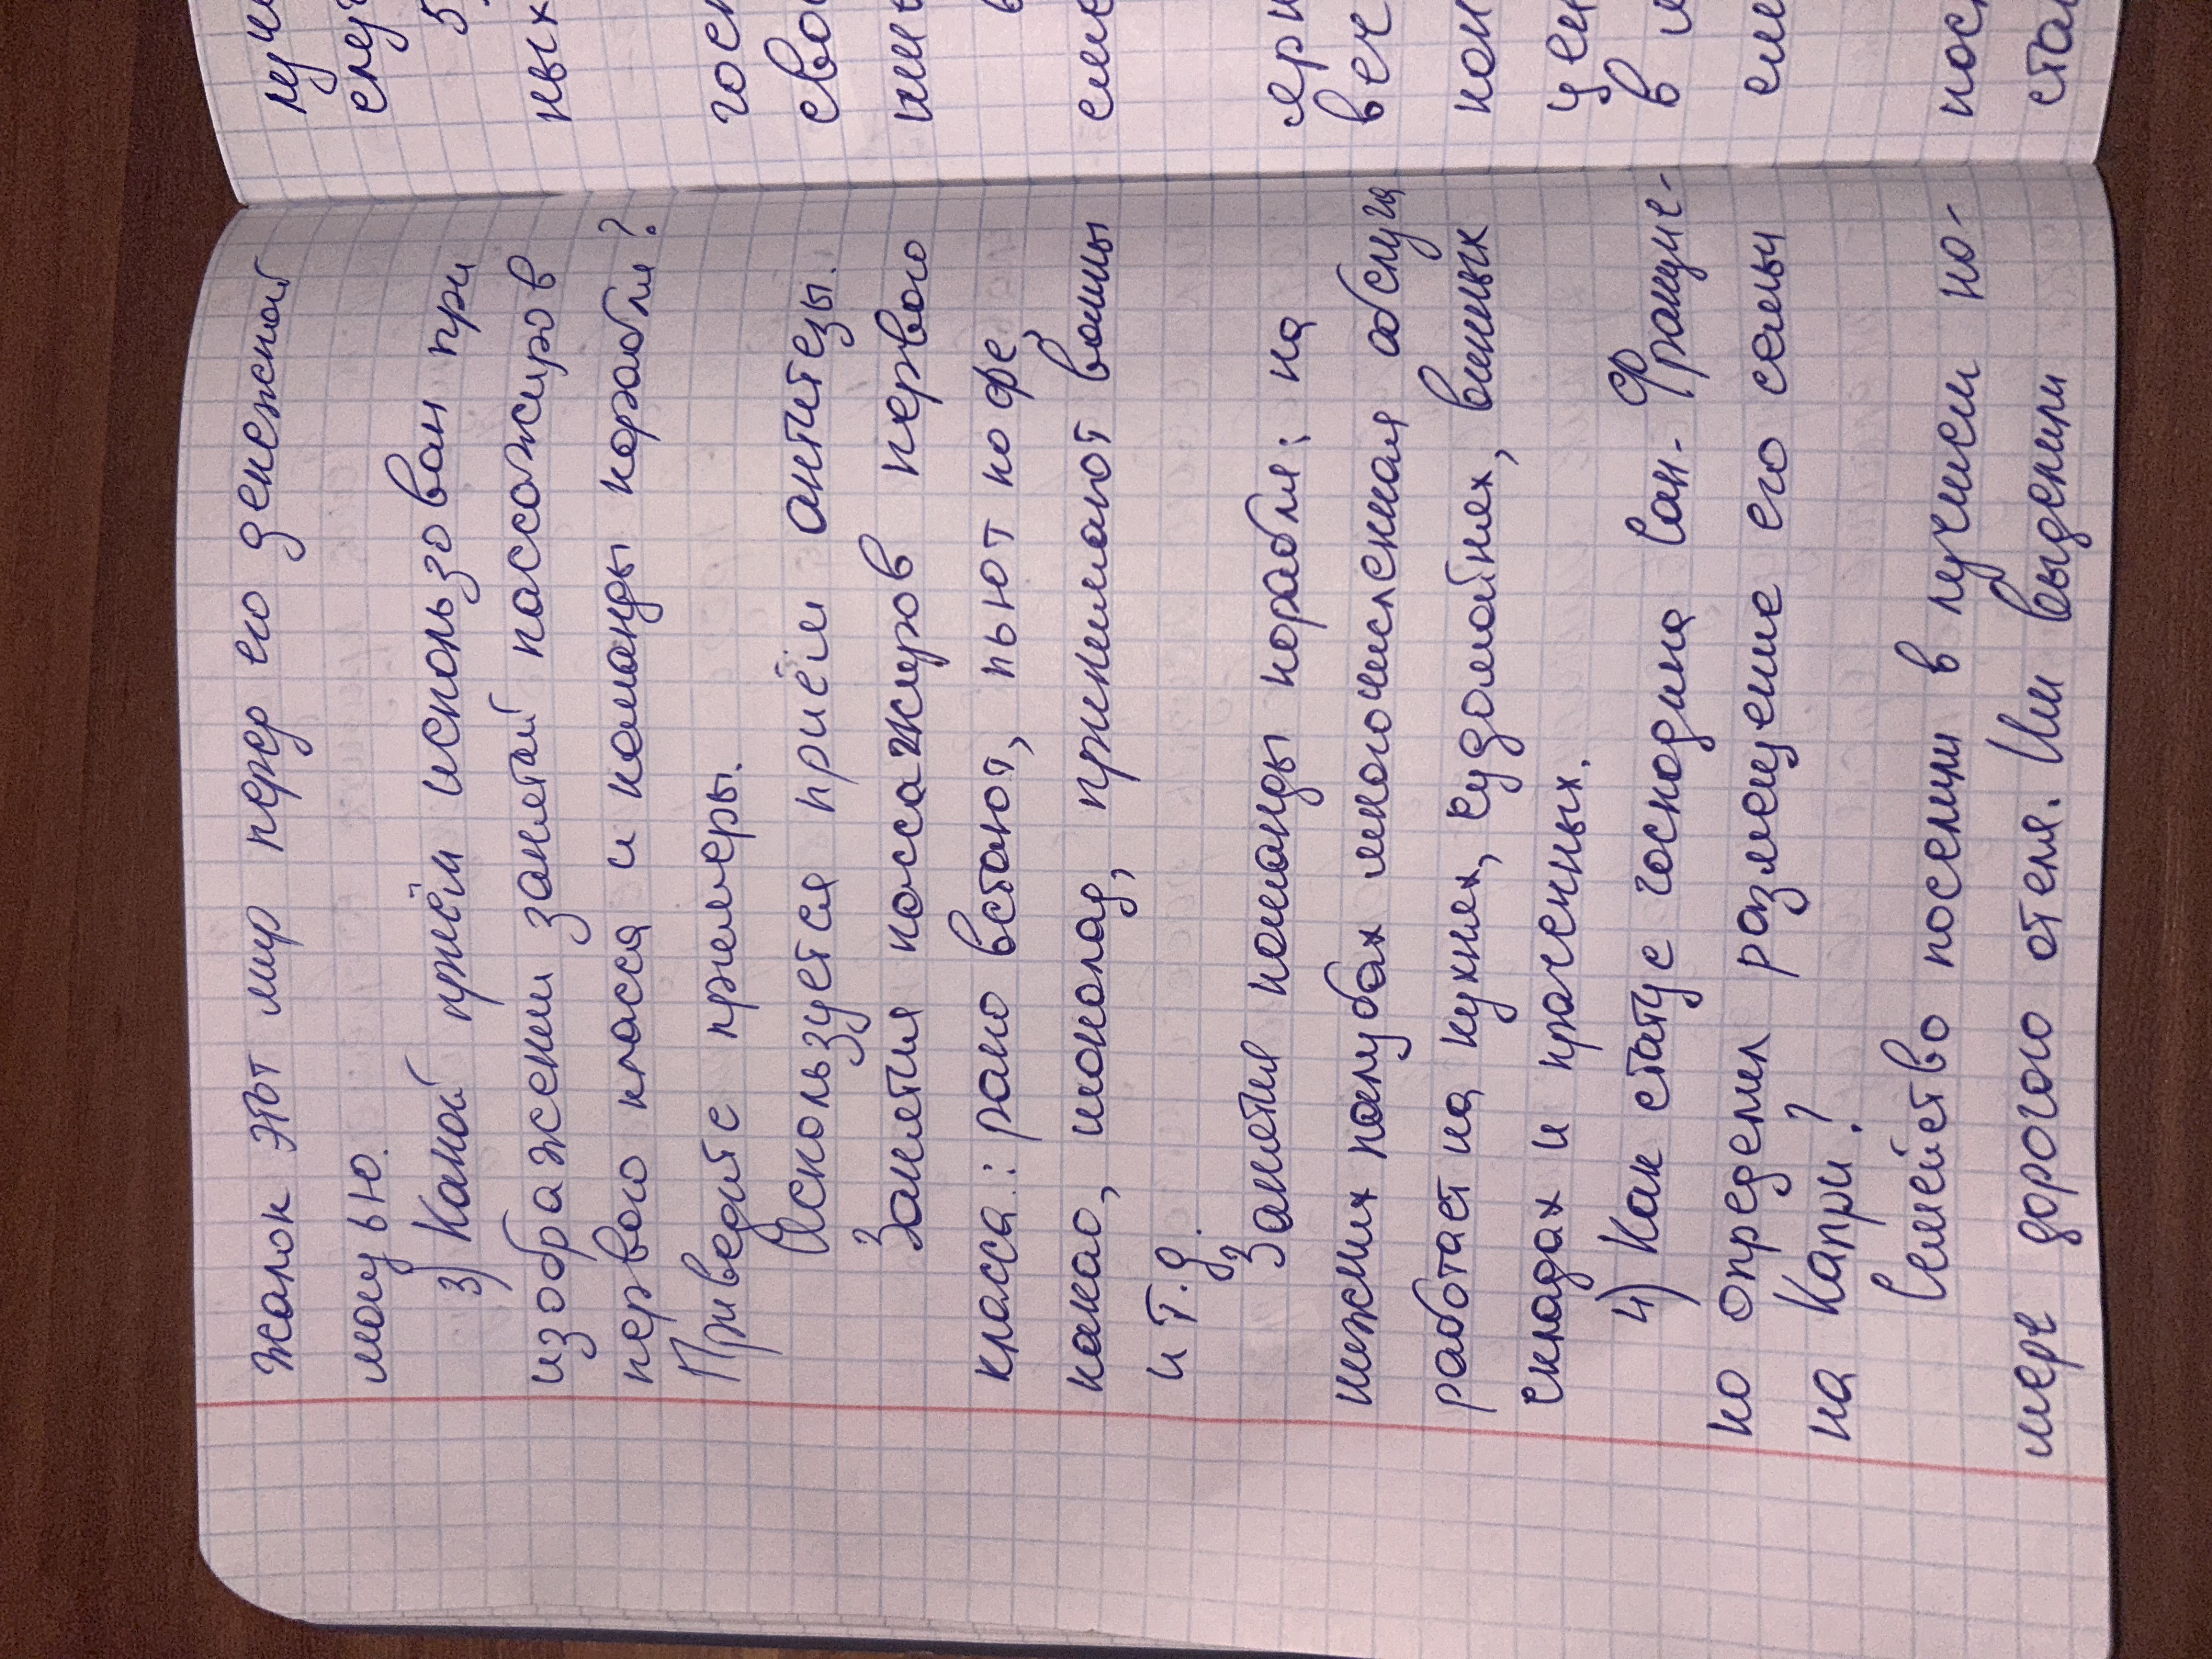 жалок этот мир перед его денежной
мощью.
3) Какой приём использован при
изображении занятий пассажиров
первого класса и команды корабля?
Приведите примеры.
Используется приём антитезы.
Занятия пассажиров первого
класса: рано встают, пьют кофе,
какао, шоколад, принимают ванны
и т.д.
Занятия команды корабля: на
нижних палубах многочисленная обслуга
работает на кухнях, судомойнях, винных
складах и прачечных.
4) Как статус господина Сан-Франциc-
ко определил размещение его семьи
на Капри?
Семейство поселили в лучшем но-
мере дорогого отеля. Им выделили